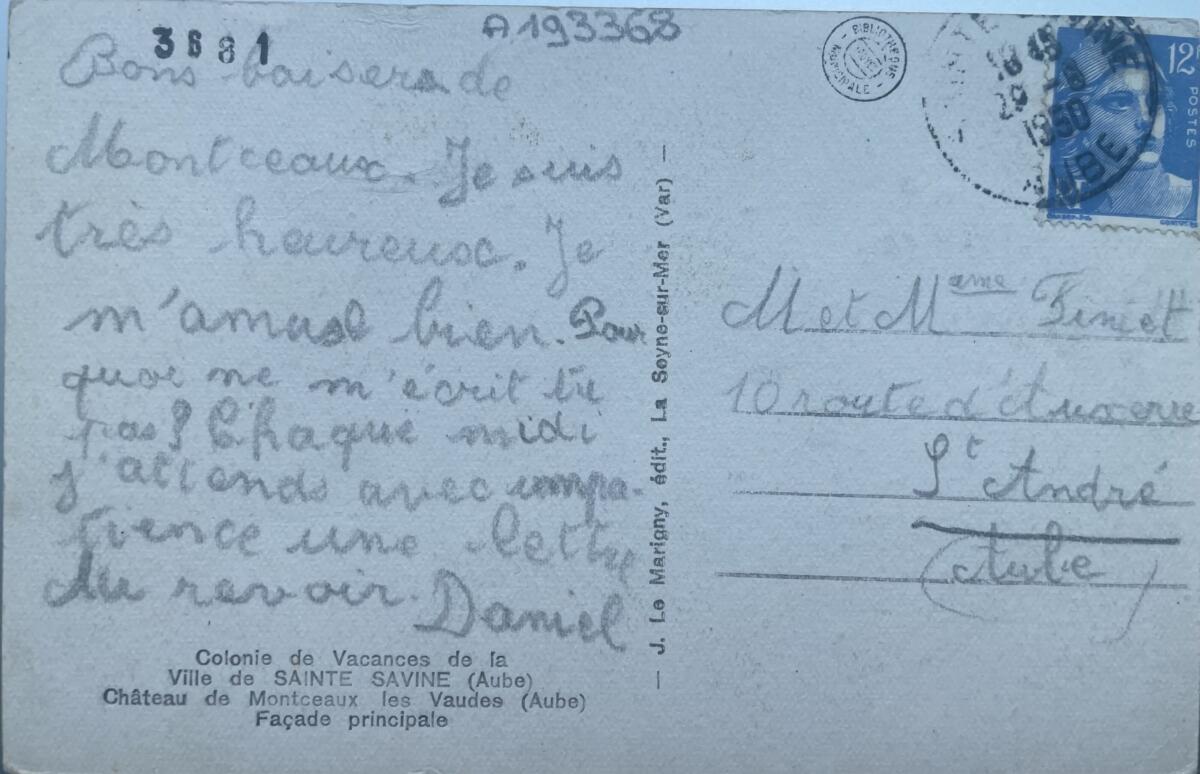 3681
A193368
BIBLIOTHEQUE
MUNICIPALE
Bons baisers de
Montceaux. Je suis
très heureux. Je
m'amuse bien. Pour
quoi ne m'écrit tu
pas? Chaque midi
j'attends avec impa-
tience une lettre
Au revoir. Daniel
Colonie de Vacances de la
Ville de SAINTE SAVINE (Aube)
Château de Montceaux les Vaudes (Aube)
Façade principale
— J. Le Marigny, édit., La Seyne-sur-Mer (Var) —
18 45
1950
AUBE
12F
POSTES
M et Mame Finiet
10 route d'Auxerre
St André
(Aube)